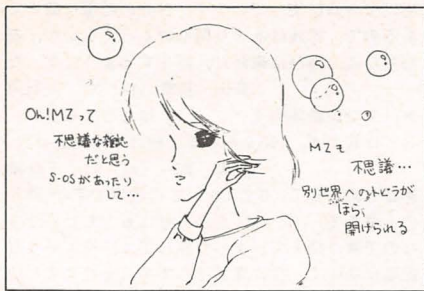 Oh!MZって
不思議な雑誌
だと思う
S-OSがあったり
して…
MZも
不思議…
別世界へのトビラが
ほら,
開けられる